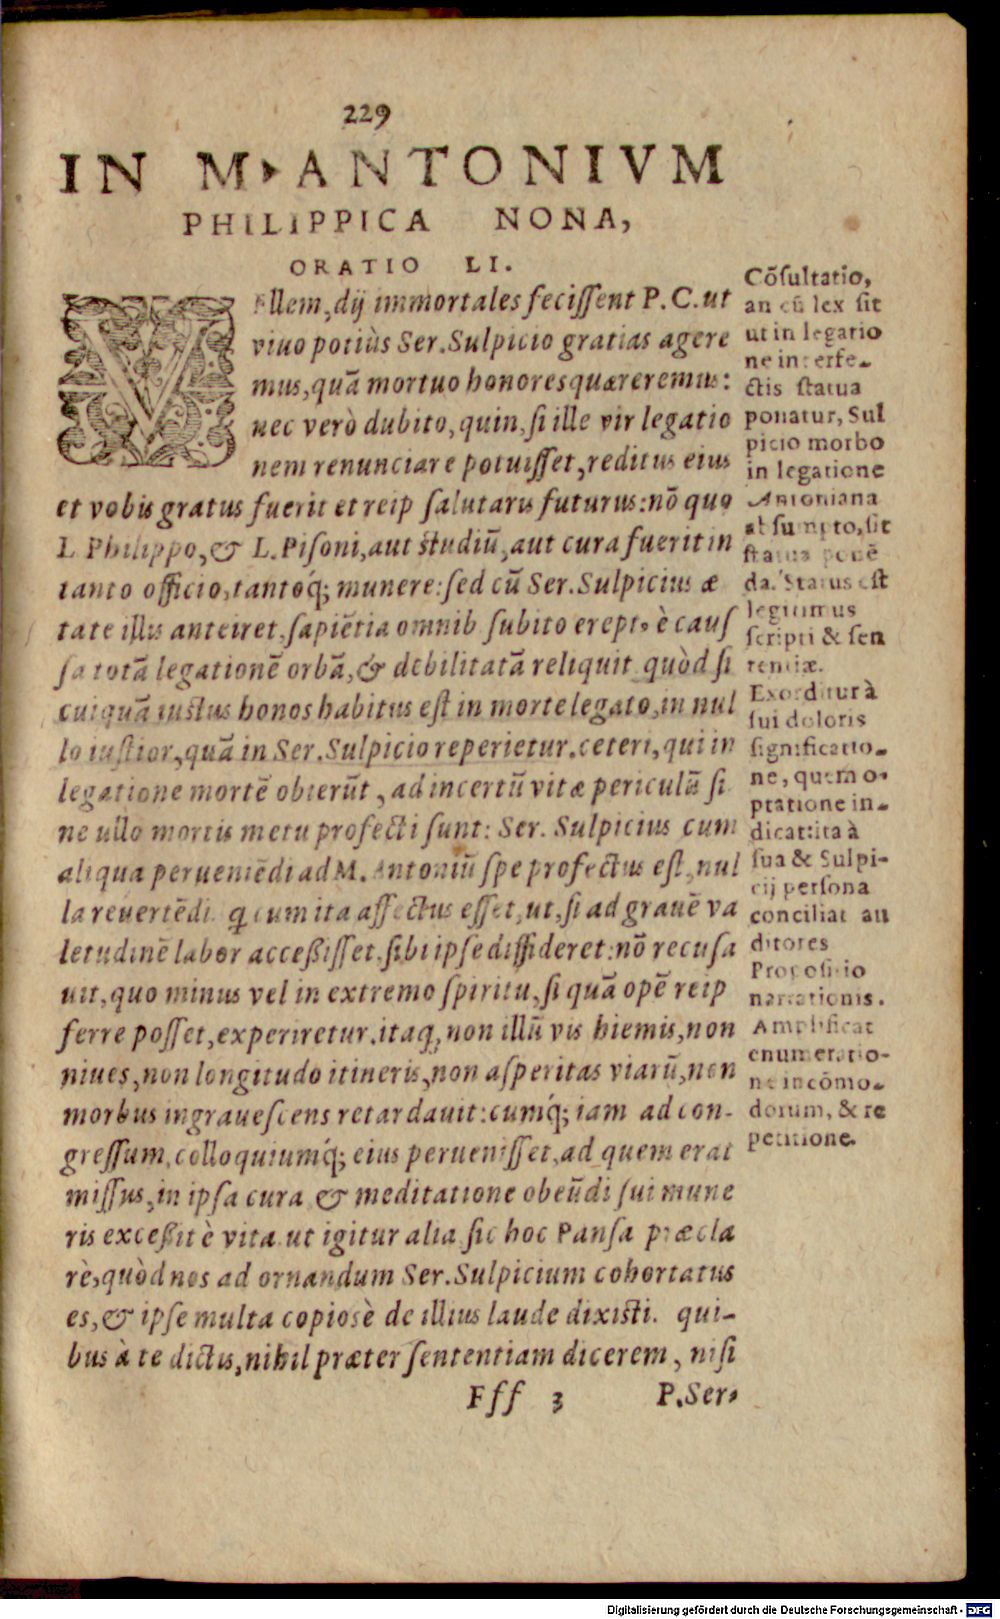 229
IN M. ANTONIVM
PHILIPPICA NONA,
ORATIO LI.
VEllem, dij immortales fecissent P.C. ut
viuo potiùs Ser. Sulpicio gratias agere
mus, quā mortuo honores quæreremus:
nec verò dubito, quin, si ille vir legatio
nem renunciare potuisset, reditus eius
et vobis gratus fuerit et reip salutaris futurus: nō quo
L Philippo, & L. Pisoni, aut studiū, aut cura fuerit in
tanto officio, tantoq́; munere: sed cū Ser. Sulpicius æ
tate illis anteiret, sapiētia omnib subito erept° è caus
sa totā legationē orbā, & debilitatā reliquit quòd si
cuiquā iustus honos habitus est in morte legato, in nul
lo iustior, quā in Ser. Sulpicio reperietur. ceteri, qui in
legatione mortē obierūt, ad incertū vitæ periculū si
ne ullo mortis metu profecti sunt: Ser. Sulpicius cum
aliqua perueniēdi ad M. Antoniū spe profectus est, nul
la reuertēdi. q cum ita affectus esset, ut, si ad grauē va
letudinē labor accessisset, sibi ipse diffideret: nō recusa
uit, quo minus vel in extremo spiritu, si quā opē reip
ferre posset, experiretur. itaq, non illū vis hiemis, non
niues, non longitudo itineris, non asperitas viarū, non
morbus ingrauescens retardauit: cumq́; iam ad con-
gressum, colloquiumq́; eius peruenisset, ad quem erat
missus, in ipsa cura & meditatione obeūdi sui mune
ris excessit è vita ut igitur alia sic hoc Pansa præcla
rè, quòd nos ad ornandum Ser. Sulpicium cohortatus
es, & ipse multa copiosè de illius laude dixisti. qui-
bus à te dictis, nihil præter sententiam dicerem, nisi
Fff 3 P. Ser-
Cōsultatio,
an cū lex sit
ut in legatio
ne interfe-
ctis statua
ponatur, Sul
picio morbo
in legatione
Antoniana
absumpto, sit
statua ponē
da. Status est
legitimus
scripti & sen
tentiæ.
Exorditur à
sui doloris
significatio-
ne, quem o-
ptatione in-
dicat: ita à
sua & Sulpi-
cij persona
conciliat au
ditores
Propositio
narrationis.
Amplificat
enumeratio-
ne incōmo-
dorum, & re
petitione.
Digitalisierung gefördert durch die Deutsche Forschungsgemeinschaft - DFG